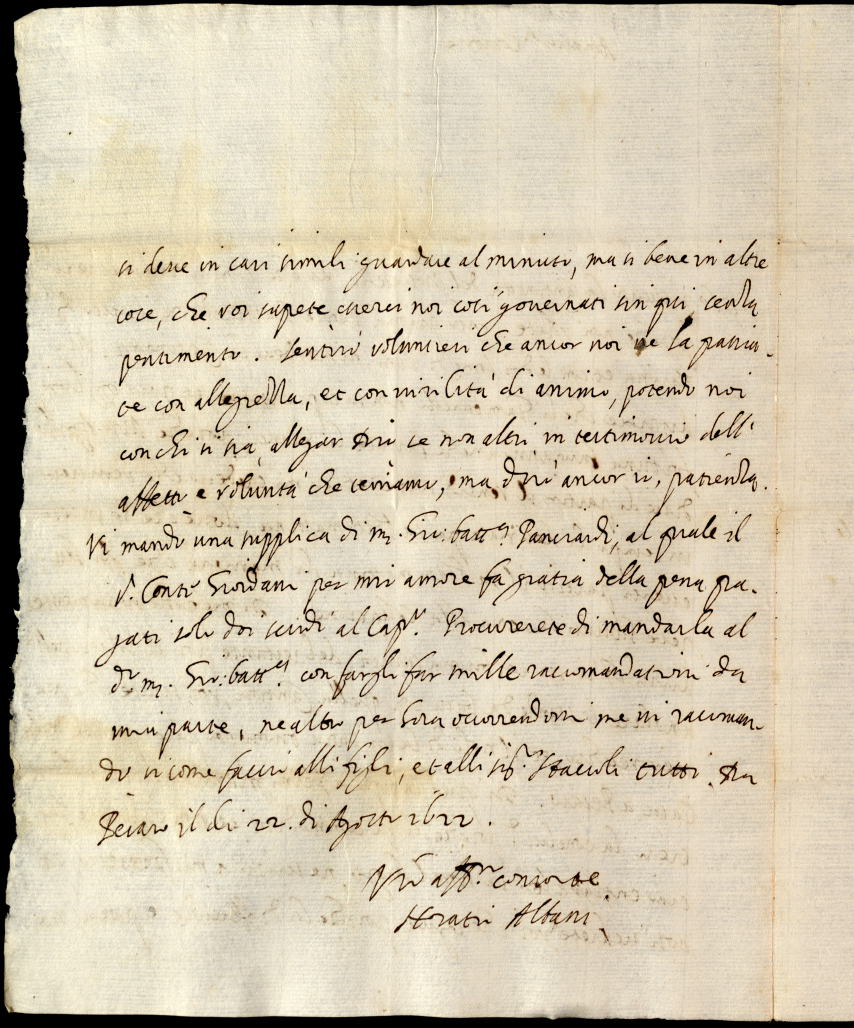 si deve in casi simili guardare al minuto, ma si bene in altre
cose, che voi sapete esserci noi così governati sin qui senza
pentimento. Sentirò volontieri che ancor noi ve la passia-
te con allegrezza, et con virilità di animo, potendo noi
con chi si sia, allegar Dio se non altri in testimonio dell'
affetto e volontà che teniamo, ma dirò ancor io, patienza.
Vi mando una supplica di m. Gio: batta Panciardi, al quale il
s. Conte Giordani per mio amore fa gratia della pena pa-
gati solo doi scudi al Capo. Procurerete di mandarla al
do m. Gio: batta con fargli far mille raccomandationi da
mia parte, ne altro per hora occorrendomi me vi racoman-
do si come faccio alli figli, et alli sigri Staccoli tutti. Da
Pesaro il di 22. di Agosto 1622.
Vro affmo consorte
Horatio Albani